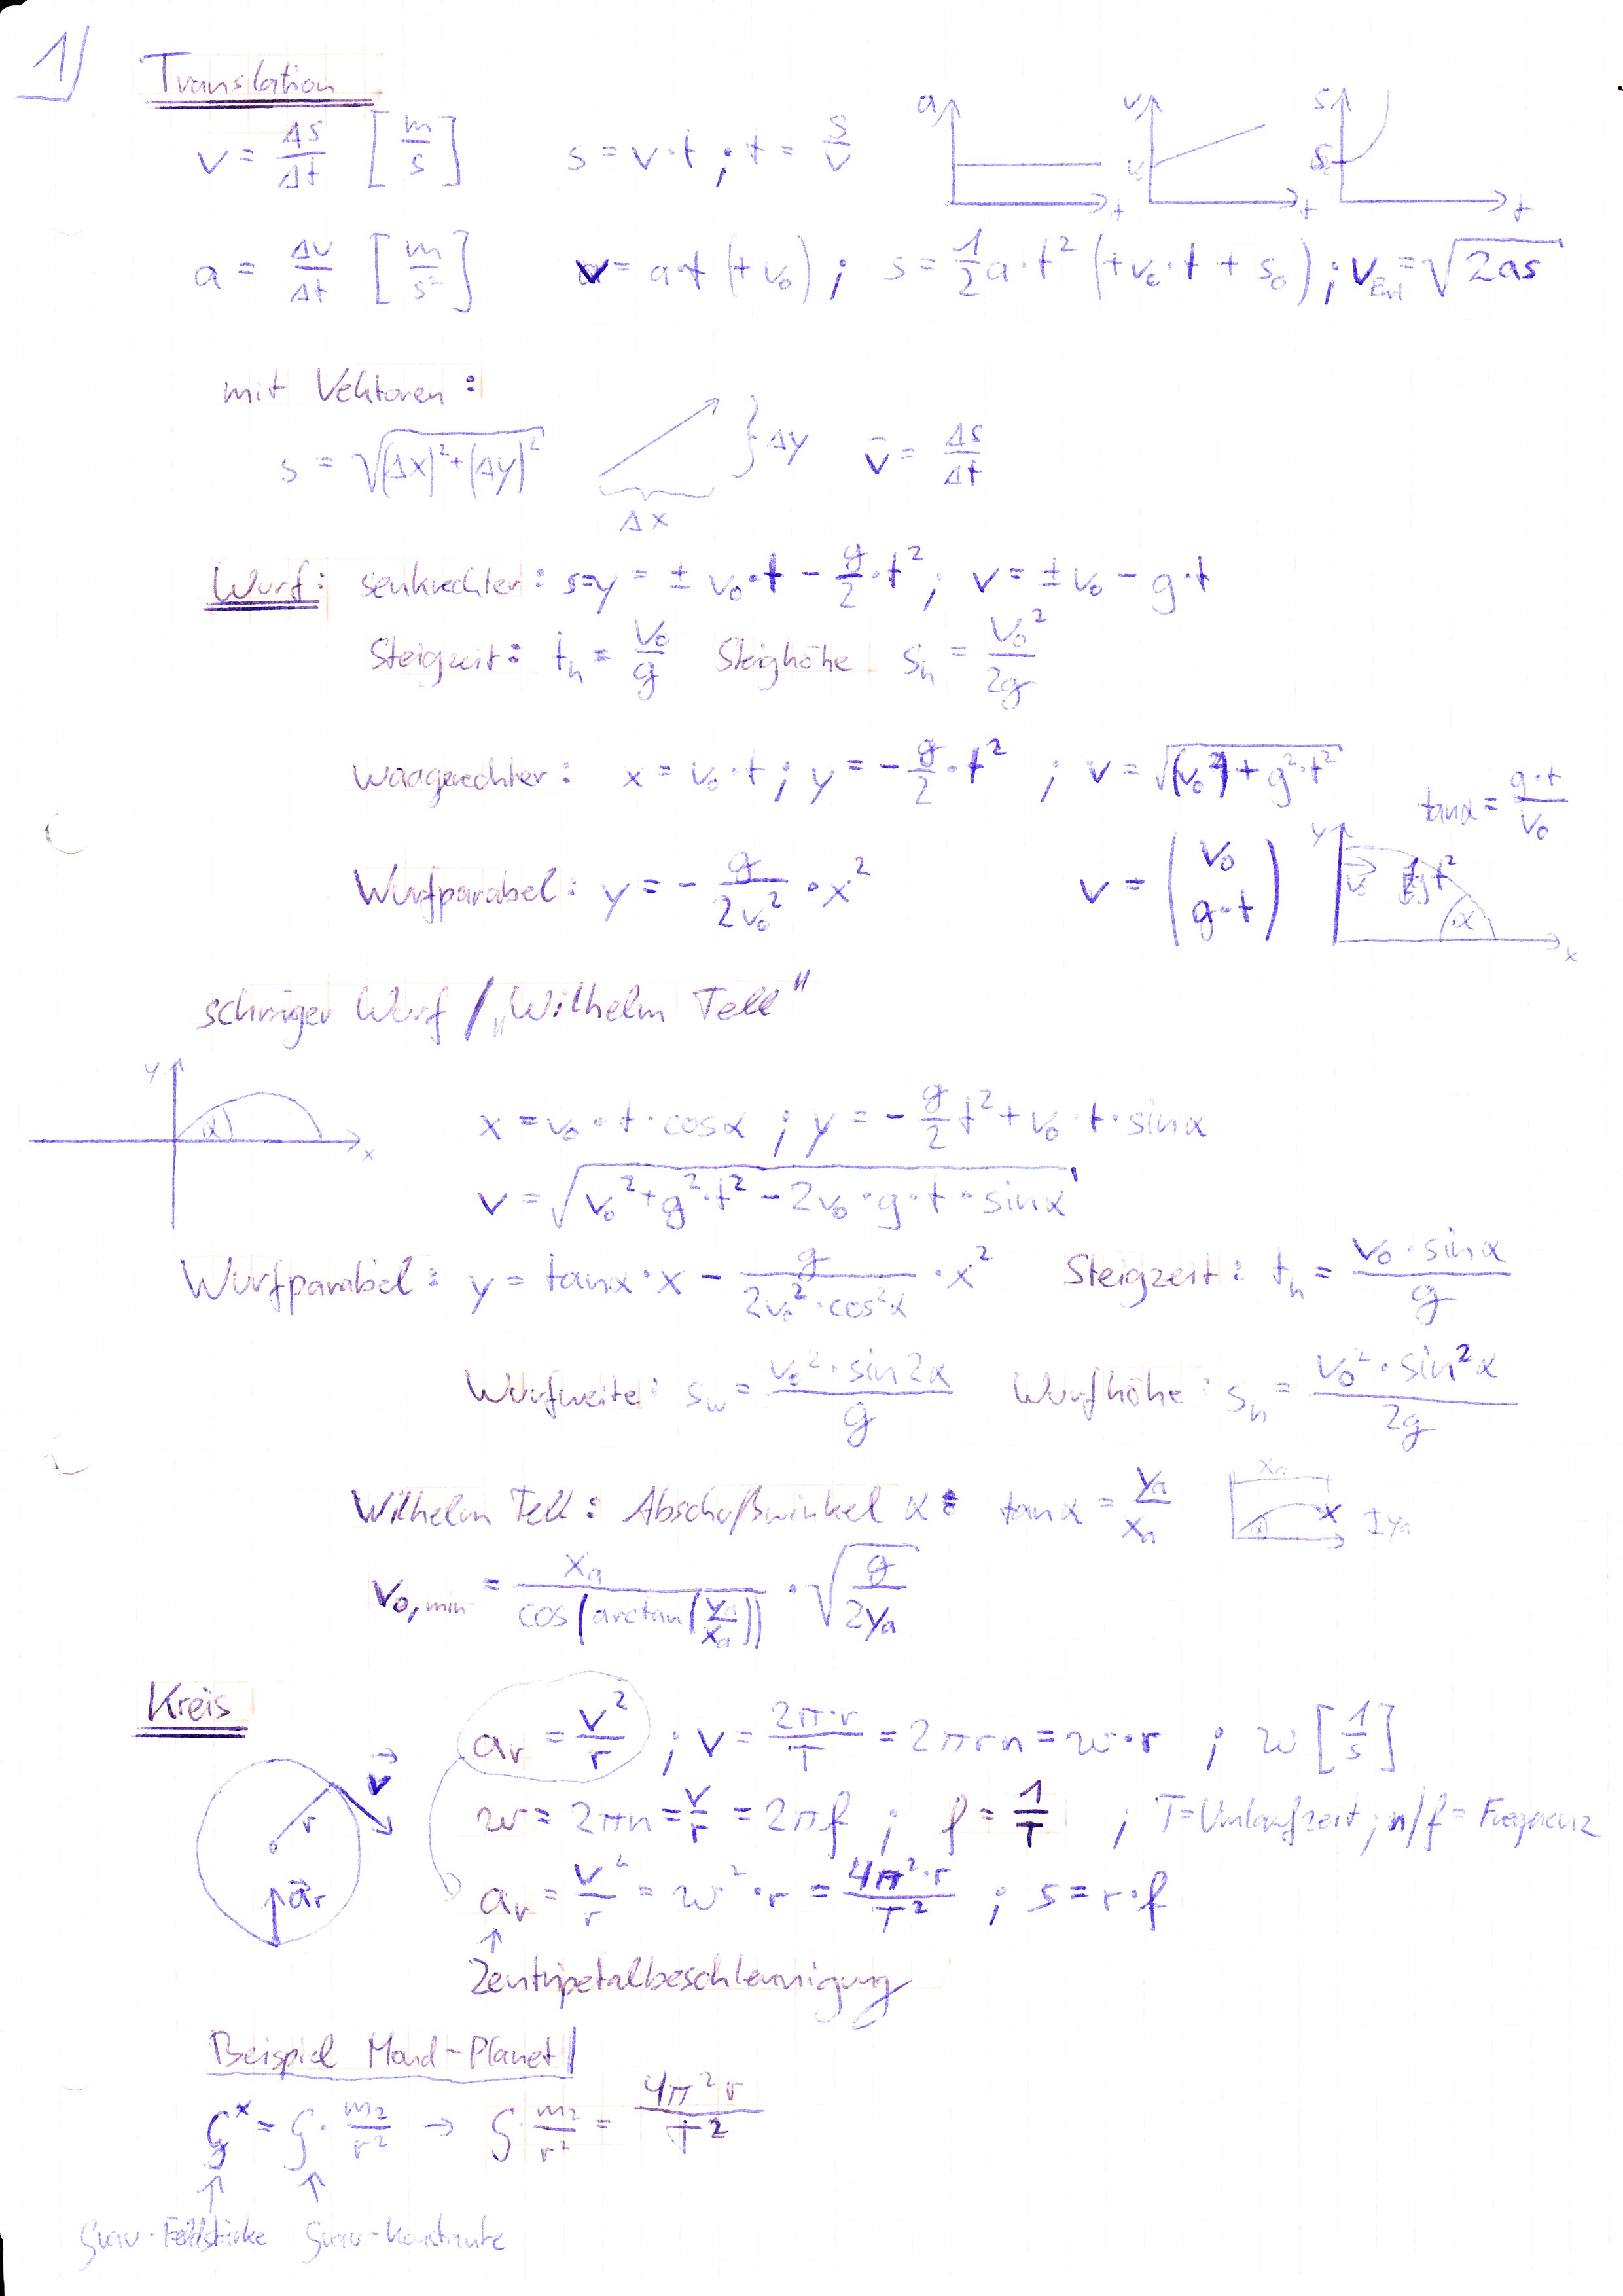 1)
Translation
v = Δs/Δt [m/s]   s = v·t ; t = s/v
a t   v v₀ t   s s₀ t
a = Δv/Δt [m/s²]   v = a·t (+v₀) ; s = 1/2 a·t² (+v₀·t + s₀) ; v_End = √(2as)
mit Vektoren:
s = √((Δx)²+(Δy)²)   }Δy   v̄ = Δs/Δt
Δx
Wurf: senkrechter: s=y = ± v₀·t − g/2·t² ; v = ±v₀ − g·t
Steigzeit: t_h = v₀/g   Steighöhe s_h = v₀²/2g
waagerechter: x = v₀·t ; y = − g/2·t² ; v = √(v₀² + g²·t²)
tanα = g·t/v₀
Wurfparabel: y = − g/(2v₀²) · x²   v = (v₀ g·t)
y v₀ α x
schräger Wurf / „Wilhelm Tell"
y α x
x = v₀·t·cosα ; y = − g/2 t² + v₀·t·sinα
v = √(v₀² + g²·t² − 2v₀·g·t·sinα)
Wurfparabel: y = tanα·x − g/(2v₀²·cos²α) · x²   Steigzeit: t_h = v₀·sinα/g
Wurfweite: s_w = v₀²·sin2α/g   Wurfhöhe: s_h = v₀²·sin²α/2g
Wilhelm Tell: Abschußwinkel α: tanα = yₐ/xₐ   xₐ α x yₐ
v₀,min = xₐ/cos(arctan(yₐ/xₐ)) · √(g/2yₐ)
Kreis
a_r = v²/r ; v = 2π·r/T = 2πrn = ω·r ; ω [1/s]
r v⃗ a⃗_r
ω = 2πn = v/r = 2πf ; f = 1/T ; T = Umlaufzeit ; n/f = Frequenz
a_r = v²/r = ω²·r = 4π²·r/T² ; s = r·f
↑
Zentripetalbeschleunigung
Beispiel Mond-Planet
G* = G · m₂/r² → G · m₂/r² = 4π²r/T²
↑ ↑
Grav-Feldstärke Grav-Konstante